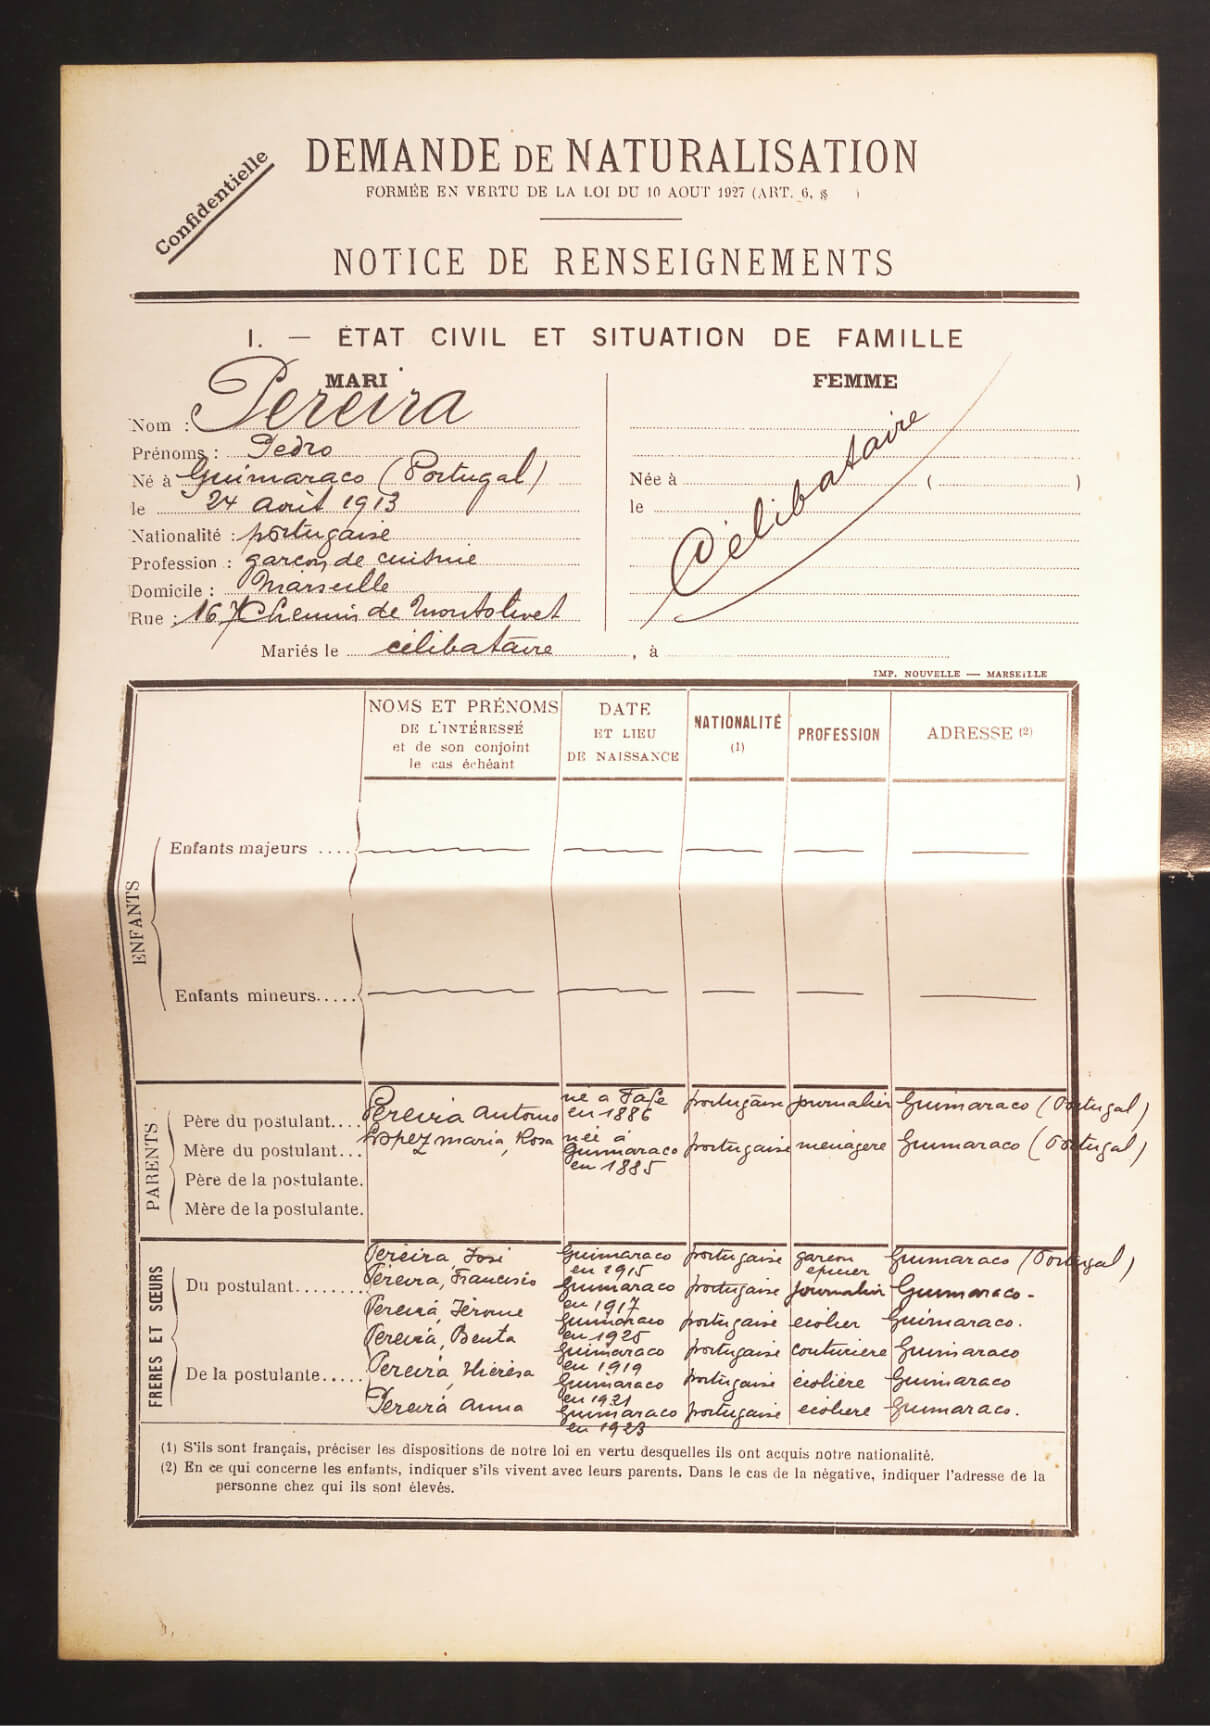 Confidentielle
DEMANDE DE NATURALISATION
FORMÉE EN VERTU DE LA LOI DU 10 AOUT 1927 (ART. 6, § )
NOTICE DE RENSEIGNEMENTS
I. — ÉTAT CIVIL ET SITUATION DE FAMILLE
MARI
Nom : Pereira
Prénoms : Pedro
Né à Guimaraco (Portugal)
le 24 Août 1913
Nationalité : portugaise
Profession : garçon de cuisine
Domicile : Marseille
Rue : 167 Chemin de Montolivet
FEMME
Née à ( )
le
Célibataire
Mariés le célibataire , à
IMP. NOUVELLE — MARSEILLE
NOMS ET PRÉNOMS DATE NATIONALITÉ PROFESSION ADRESSE (2)
DE L'INTÉRESSÉ ET LIEU (1)
et de son conjoint DE NAISSANCE
le cas échéant
ENFANTS
Enfants majeurs ....
Enfants mineurs.....
PARENTS
Père du postulant.... Pereira Antonio né à Fafe en 1886 portugaise journalier Guimaraco (Portugal)
Mère du postulant... Lopez maria, Rosa née à Guimaraco en 1885 portugaise ménagère Guimaraco (Portugal)
Père de la postulante.
Mère de la postulante.
FRERES ET SŒURS
Du postulant.........
De la postulante.....
Pereira, José Guimaraco en 1915 portugaise garcon epicier Guimaraco (Portugal)
Pereira, Francisco Guimaraco en 1917 portugaise journalier Guimaraco.
Pereira, Jérome Guimaraco en 1925 portugaise écolier Guimaraco.
Pereira, Benta Guimaraco en 1919 portugaise couturiere Guimaraco
Pereira, Thérèsa Guimaraco en 1921 portugaise écolière Guimaraco
Pereira Anna Guimaraco en 1923 portugaise écoliere Guimaraco.
(1) S'ils sont français, préciser les dispositions de notre loi en vertu desquelles ils ont acquis notre nationalité.
(2) En ce qui concerne les enfants, indiquer s'ils vivent avec leurs parents. Dans le cas de la négative, indiquer l'adresse de la
personne chez qui ils sont élevés.